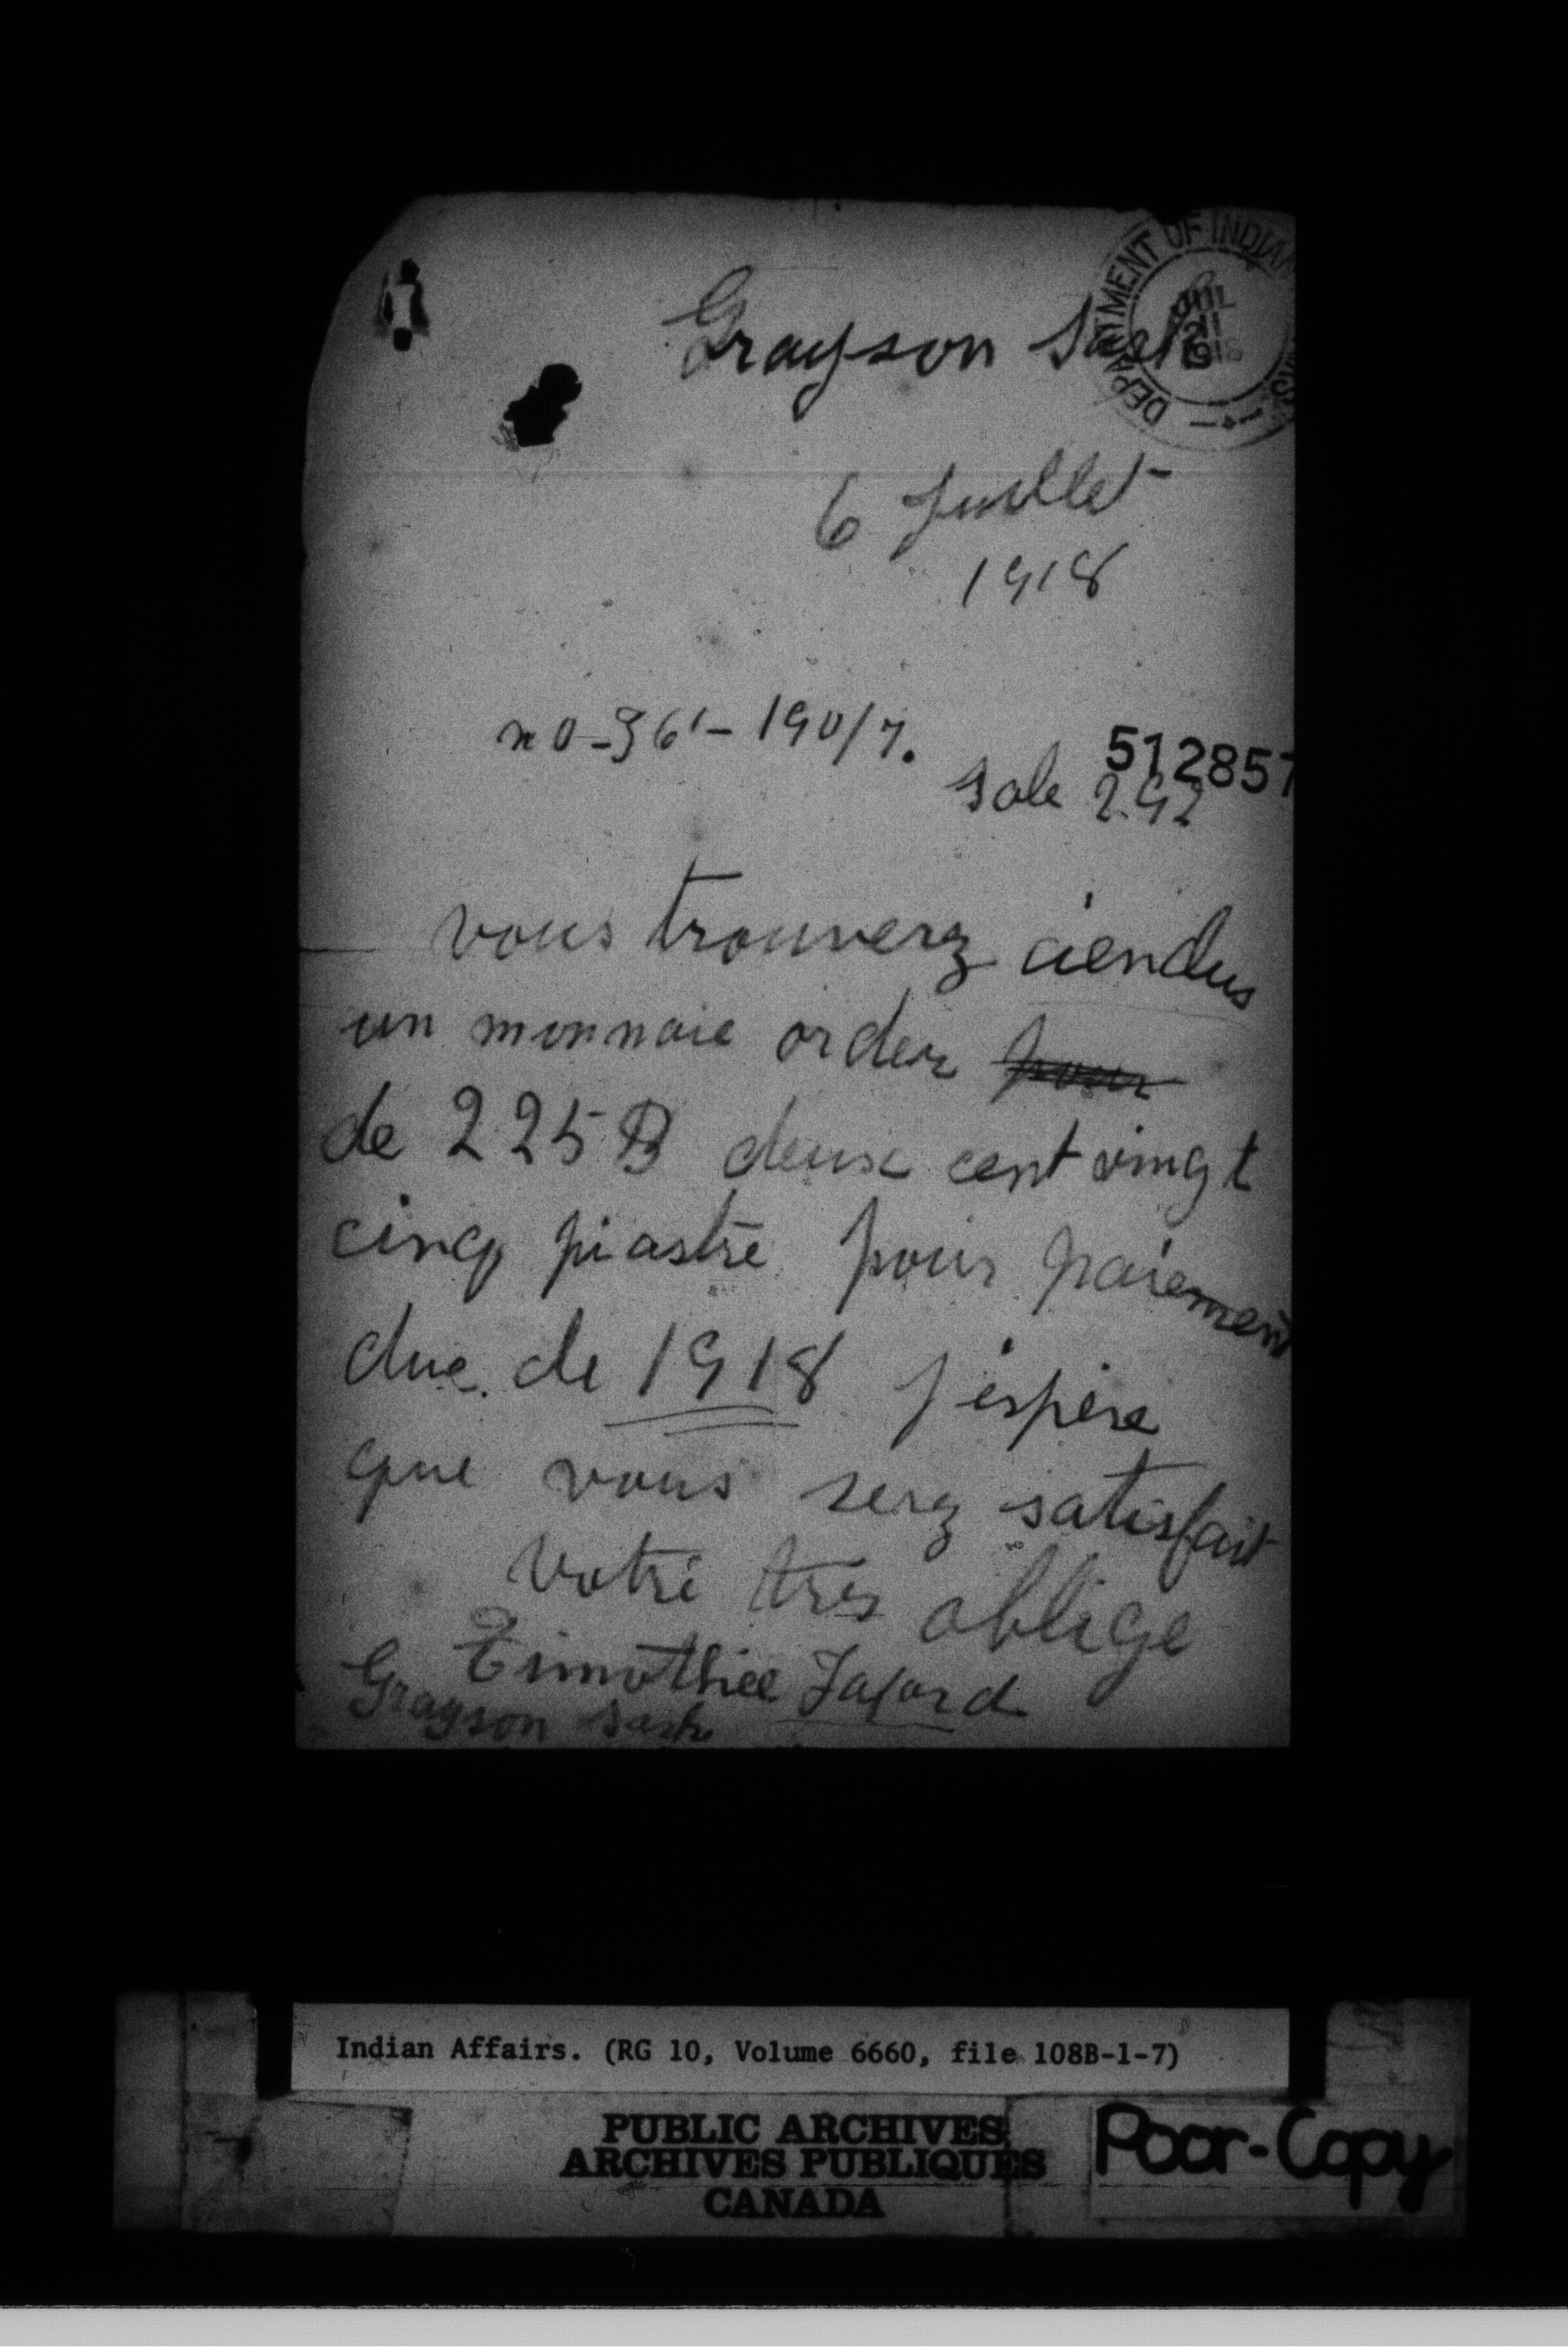 DEPARTMENT OF INDIAN
JUL
11
Grayson Sask
6 Juillet
1918
no-36'-190/7.
512857
Sale 292
vous trouverz ciendus
un monnaie order pour
de 225 B deux cent vingt
cinq piastre pour paiement
due. de 1918 j'espère
que vous serz satisfait
Votre tres oblige
Timothiee Lafard
Grayson Sask
Indian Affairs. (RG 10, Volume 6660, file 108B-1-7)
PUBLIC ARCHIVES
ARCHIVES PUBLIQUES
CANADA
Poor-Copy